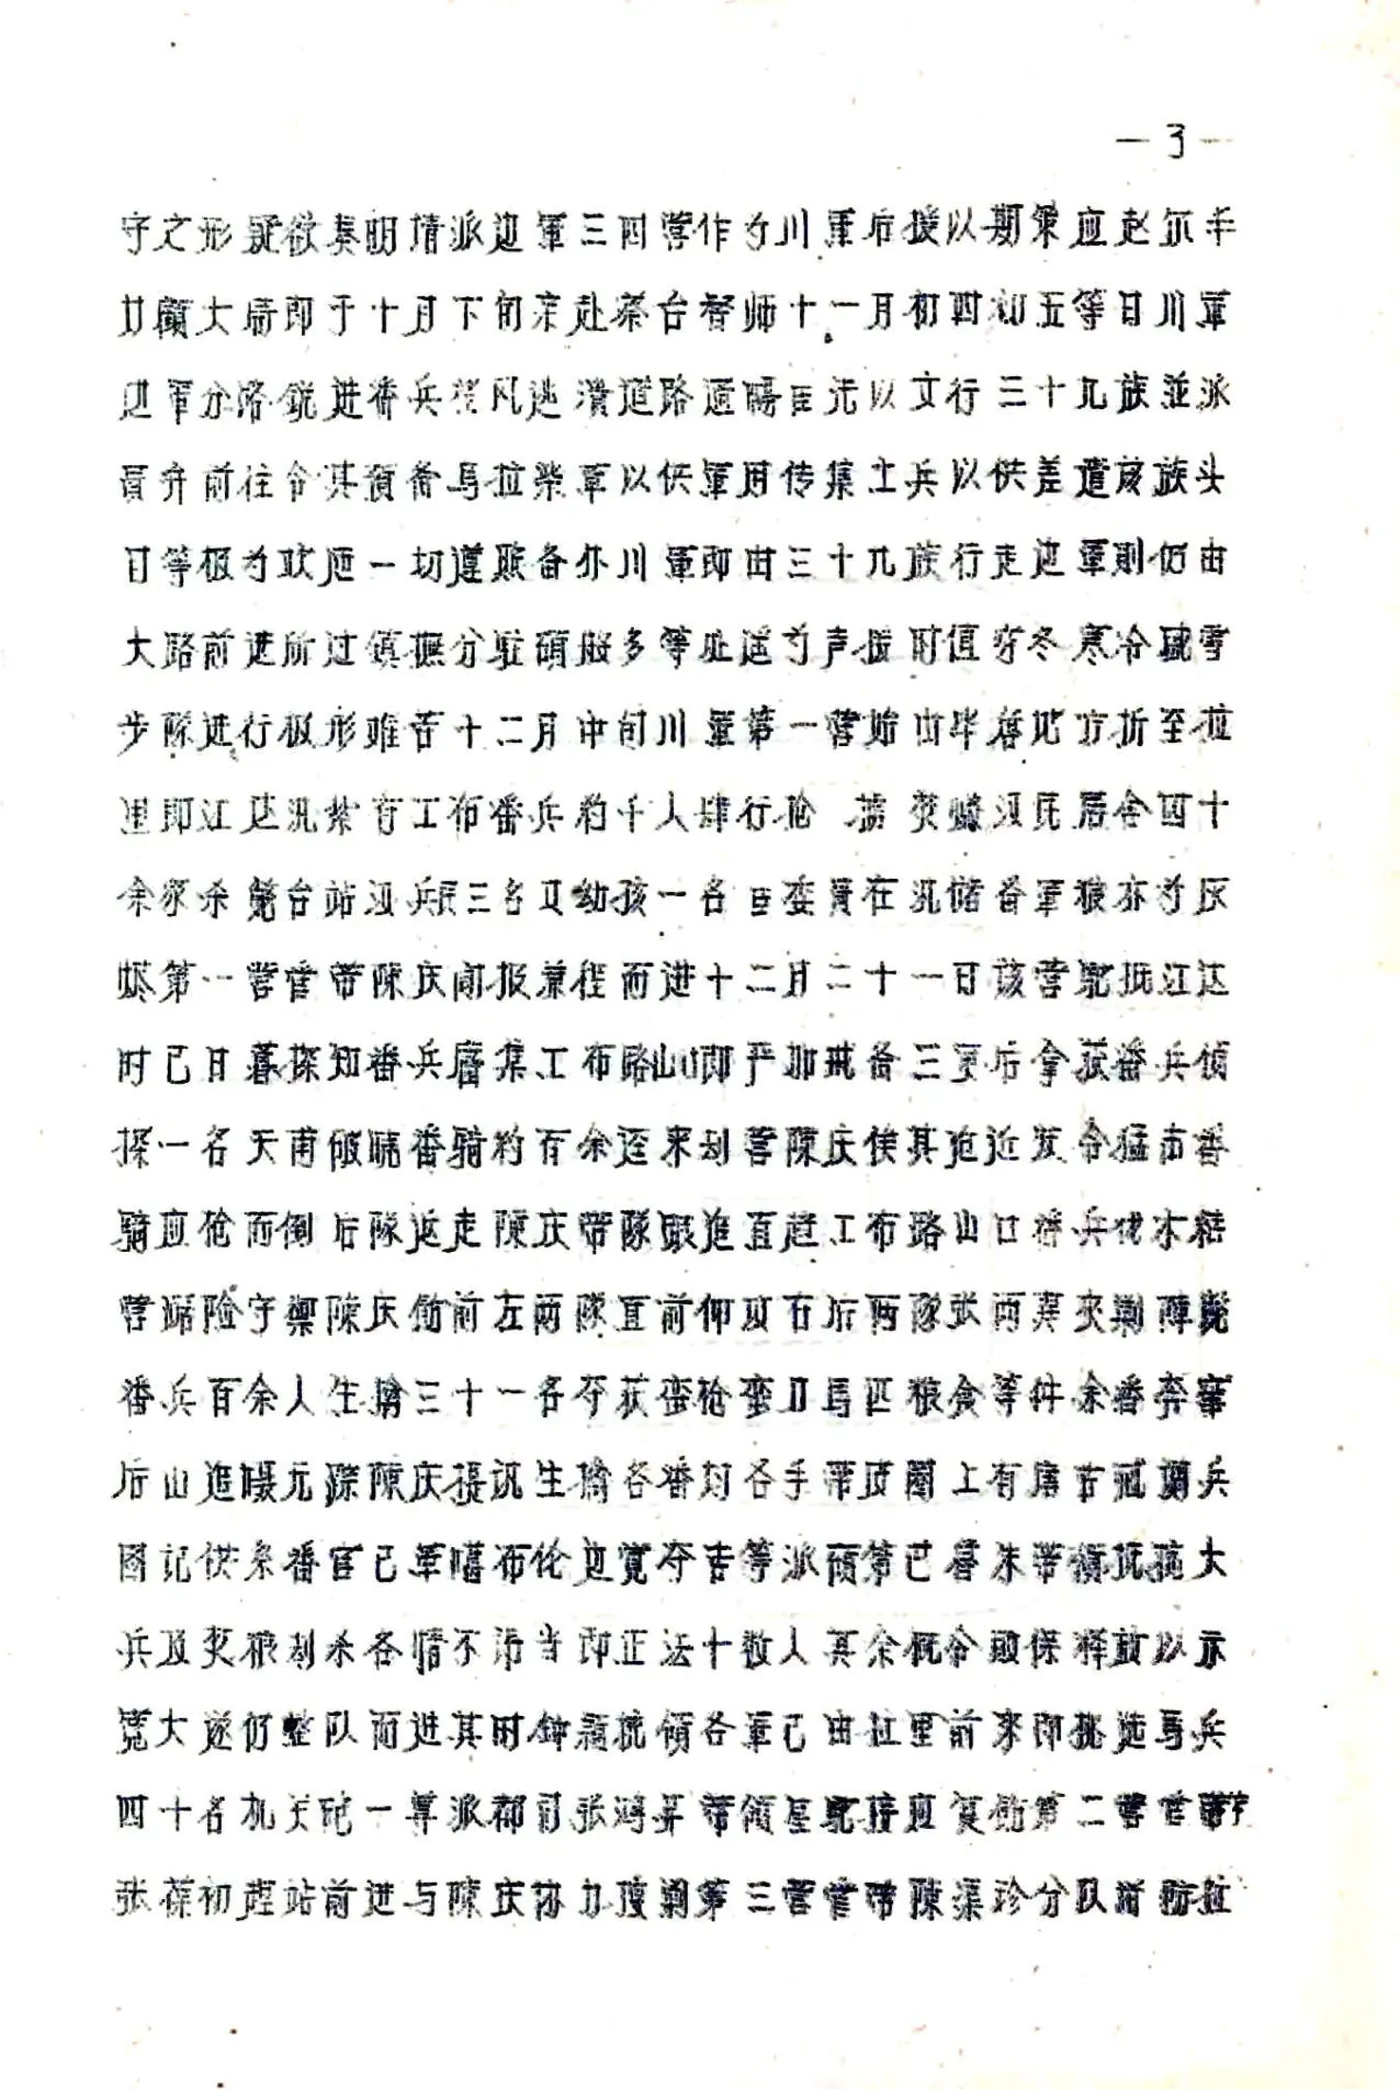 —3—
守之形疑欲奏明请派边军三四营作为川军后援以期策应赵尔丰
力顾大局即于十月下旬亲赴察台督师十一月初四初五等日川军
边军分路锐进番兵望风逃溃道路通畅臣先以文行三十九族并派
员弁前往令其预备乌拉柴草以供军用传集土兵以供差遣该族头
目等极为欢迎一切遵照备办川军即由三十九族行走边军则仍由
大路前进所过镇抚分驻硕般多等处遥为声援时值穷冬寒冷碱雪
步队进行极形难苦十二月中旬川军第一营始由毕蚌地方折至拉
里即江达汛禁有工布番兵约千人肆行抢 掳 焚烧汉民居舍四十
余家杀毙台站汉兵民三名及幼孩一名臣委员在汛储备军粮亦为灰
烬第一营管带陈庆闻报兼程而进十二月二十一日该营驰抵江达
时已日暮探知番兵屯集工布路山即严加戒备三更后拿获番兵侦
探一名天甫破晓番骑约百余迳来劫营陈庆俟其迫近发令猛击番
骑应枪而倒后队返走陈庆带队跟追直赶工布路山口番兵伐木结
营踞险守御陈庆饬前左两队直前仰攻右后两队张两翼夹剿阵毙
番兵百余人生擒三十一名夺获蛮枪蛮刀马匹粮食等件余番奔窜
后山追蹑无踪陈庆提讯生擒各番均各手带皮圈上有唐古忒调兵
图记供系番官已军噶布伦边觉夺吉等派硕第巴番朱带领抵拒大
兵及焚粮劫杀各情不讳当即正法十数人其余概令取保释放以示
宽大遂仍整队而进其时钟颖统领各军已由拉里前来即挑选马兵
四十名机关砲一尊派都司张鸿昇带领星驰接应复饬第二营管带
张葆初趱站前进与陈庆协力援剿第三营管带陈渠珍分队前防拉